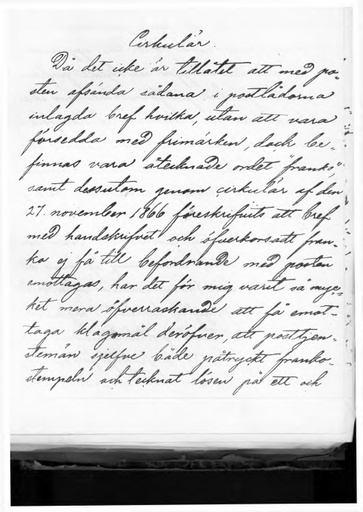 Cirkulär.
Då det icke är tillåtet att med po-
sten afsända sådana i postlådorna
inlagda bref hvilka, utan att vara
försedda med frimärken, dock be-
finnas vara åtecknade ordet "franko",
samt dessutom genom cirkulär af den
27. november 1866 föreskrifvits att bref
med handskrifvet och öfverkorsatt fran-
ko ej få till befordrande med posten
emottagas, har det för mig varit så myc-
ket mera öfverraskande att få emot-
taga klagomål deröfver, att posttjen-
stemän sjelfve både påtryckt franko-
stempeln och tecknat lösen på ett och